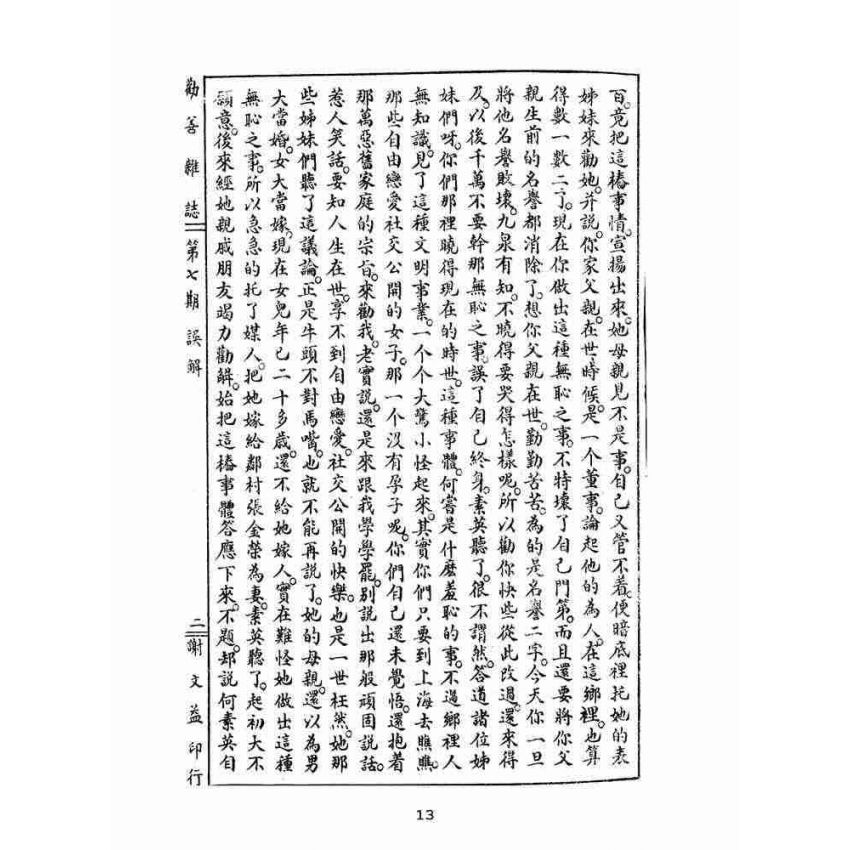 百。竟把這樁事情。宣揚出來。她母親見不是事。自己又管不着。便暗底裡托她的表
姊妹來勸她。并說你家父親。在世時候。是一个董事。論起他的為人。在這鄉裡。也算
得數一數二了。現在你做出這種無恥之事。不特壞了自己門第。而且還要將你父
親生前的名譽都消除了。想你父親在世。勤勤苦苦。為的是名譽二字。今天你一旦
將他名譽敗壞。九泉有知。不曉得要哭得怎樣呢。所以勸你快些從此改過。還來得
及。以後千萬不要幹那無恥之事。誤了自己終身。素英聽了。很不謂然。答道諸位姊
妹們呀。你們那裡曉得現在的時世。這種事體。何嘗是什麽羞恥的事。不過鄉裡人
無知識。見了這種文明事業。一个个大驚小怪起來。其實你們只要到上海去瞧瞧。
那些自由戀愛社交公開的女子。那一个沒有孕子呢。你們自己還未覺悟。還抱着
那萬惡舊家庭的宗旨。來勸我。老實說。還是來跟我學學罷。別說出那般頑固說話。
惹人笑話。要知人生在世。享不到自由戀愛。社交公開的快樂。也是一世枉然。她那
些姊妹們聽了這議論。正是牛頭不對馬嘴。也就不能再說了。她的母親。還以為男
大當婚。女大當嫁。現在女兒年已二十多歲。還不給她嫁人。實在難怪她做出這種
無恥之事。所以急急的托了媒人。把她嫁給鄰村張金榮為妻。素英聽了。起初大不
願意。後來經她親戚朋友竭力勸解。始把這樁事體答應下來。不題。却說何素英自
勸善雜誌 第七期 誤解 二 謝文益印行
13